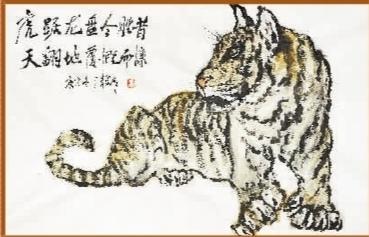 虎踞龙盘今胜昔
天翻地覆慨而慷